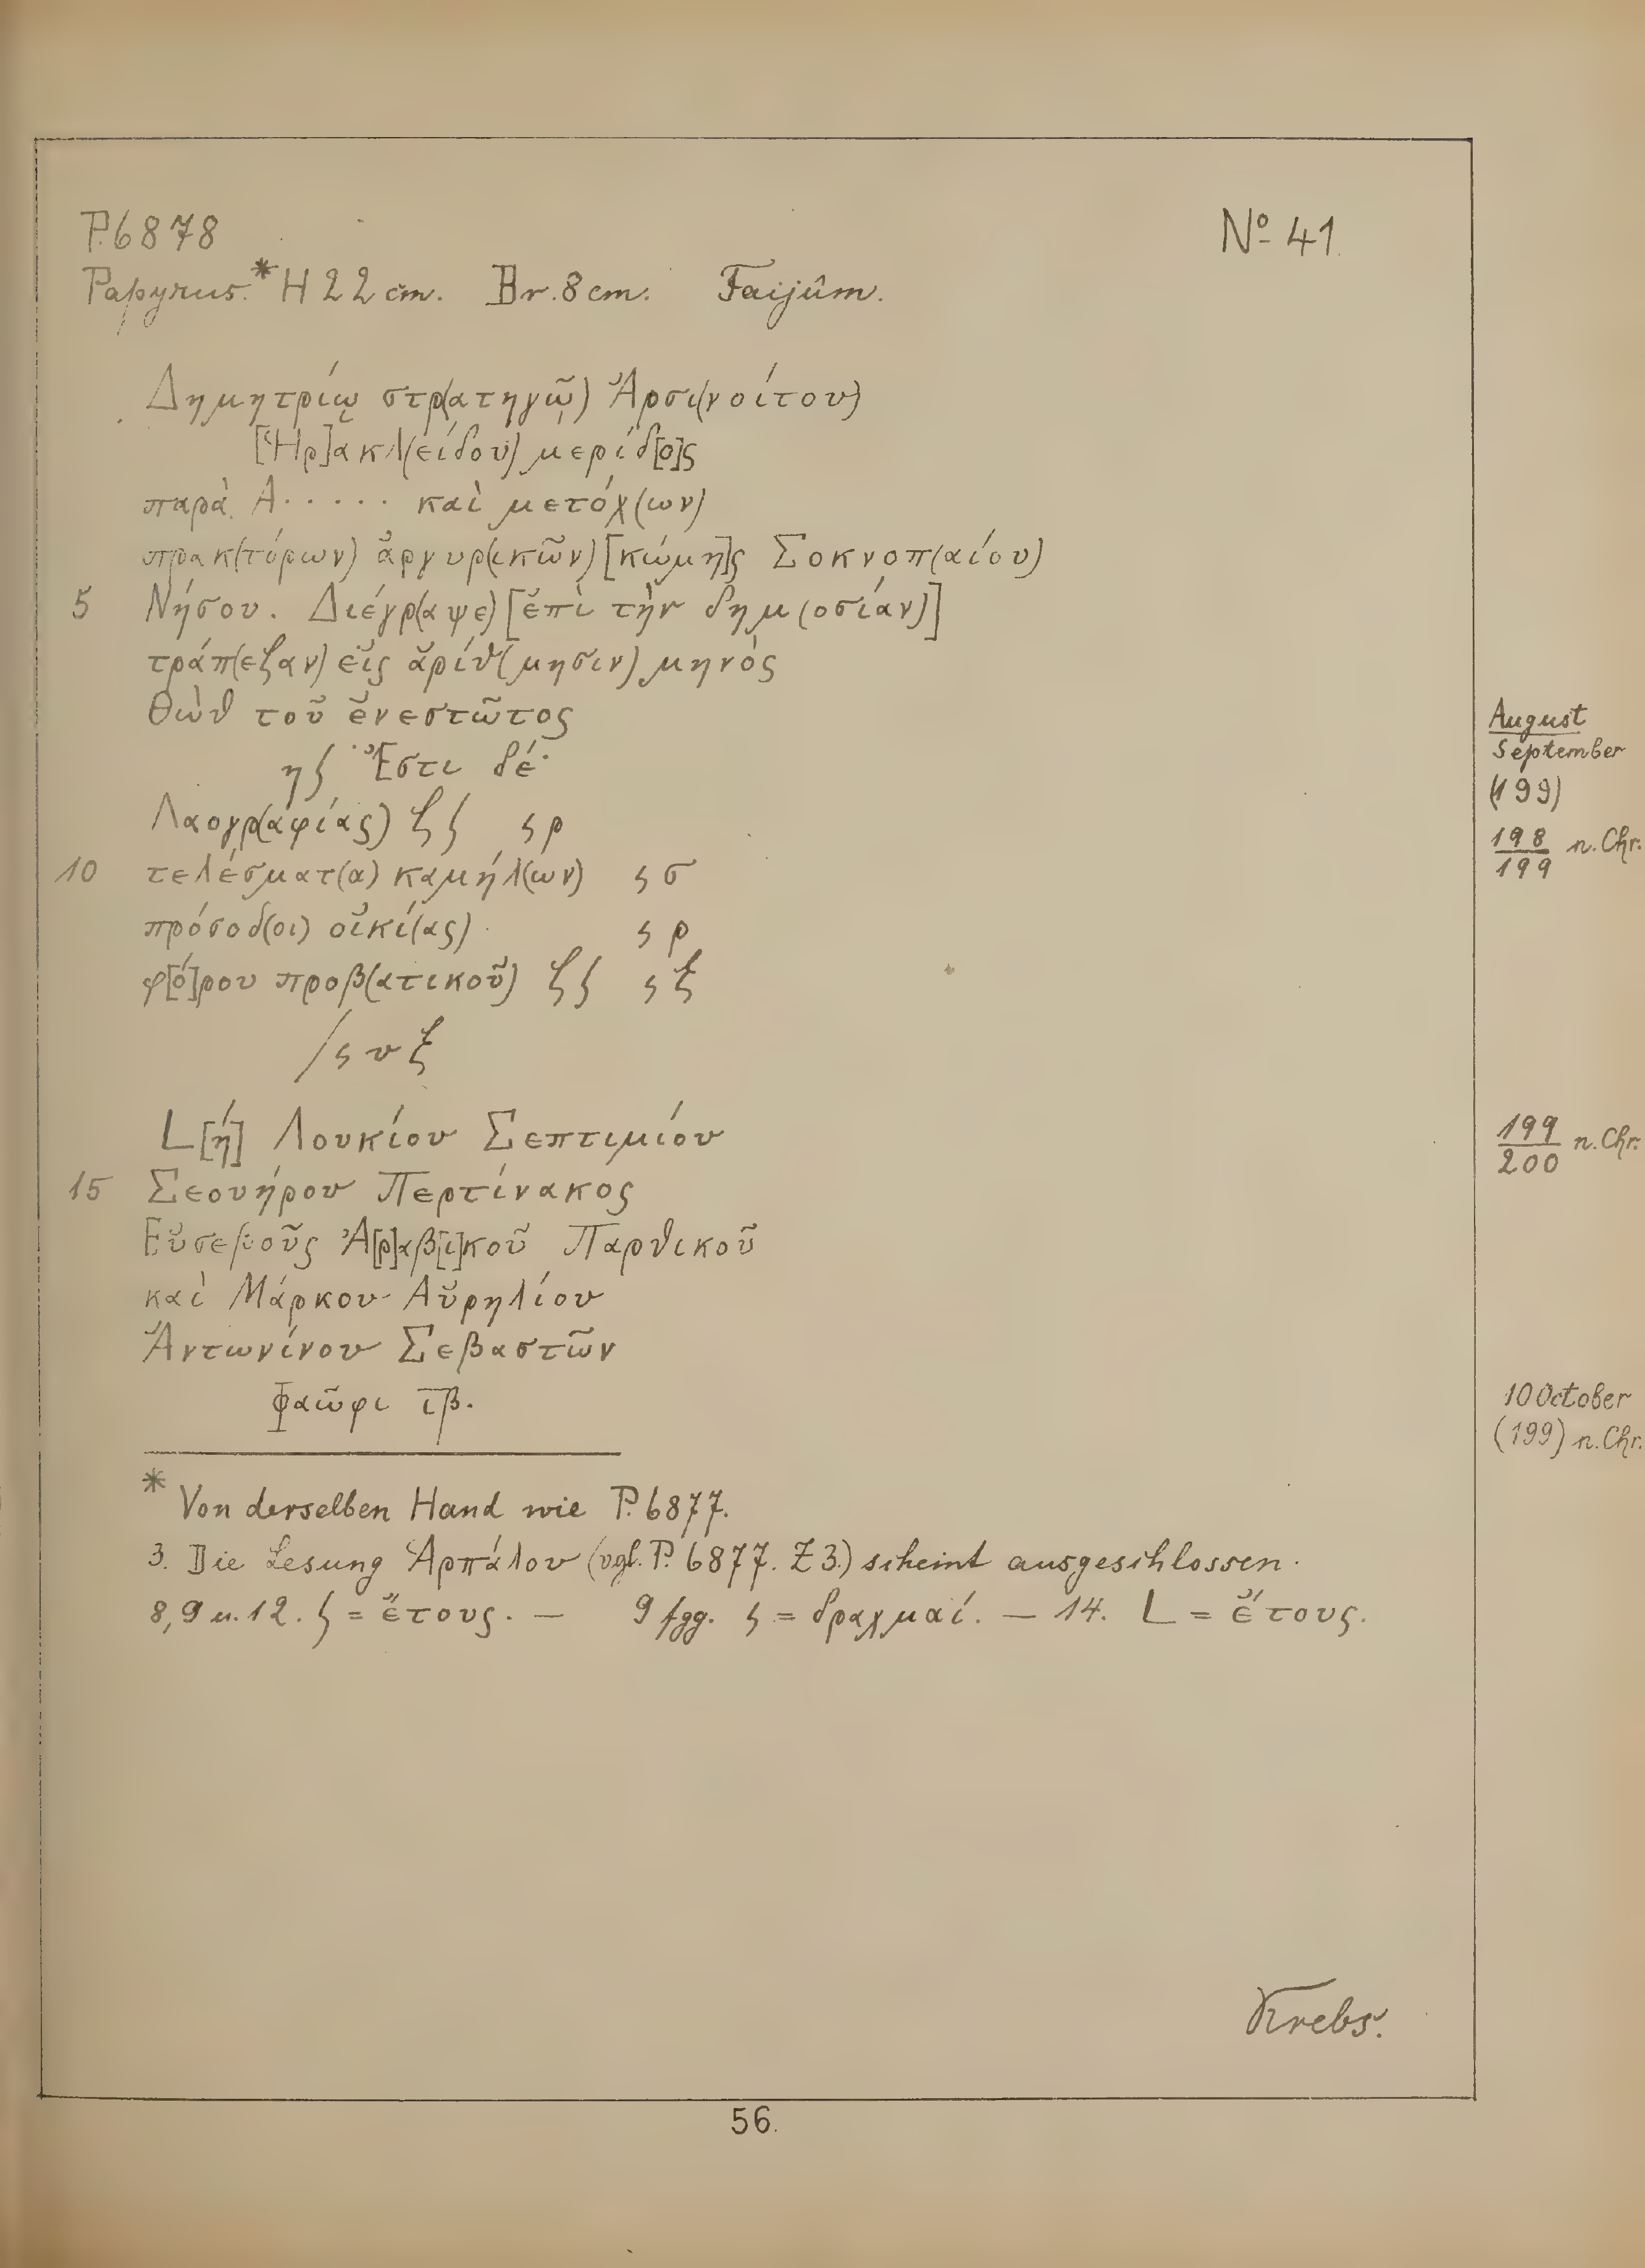 P.6878
No 41.
Papyrus.* H 22 cm. Br. 8 cm. Faijûm.
Δημητρίῳ στρ(ατηγῷ) Ἀρσι(νοίτου)
[Ἡρ]ακλ(είδου) μερίδ[ο]ς
παρὰ Α····· καὶ μετόχ(ων)
πρακ(τόρων) ἀργυρ(ικῶν) [κώμη]ς Σοκνοπ(αίου)
5 Νήσου. Διέγρ(αψε) [ἐπὶ τὴν δημ(οσίαν)]
τράπ(εζαν) εἰς ἀρίθ(μησιν) μηνὸς
Θὼθ τοῦ ἐνεστῶτος
August
September
(199)
ηʃ Ἔστι δέ·
Λαογρ(αφίας) ζʃ ς ρ
198/199 n. Chr.
10 τελέσματ(α) καμήλ(ων) ς σ
πρόσοδ(οι) οἰκί(ας) ς ρ
φ[ό]ρου προβ(ατικοῦ) ζʃ ς ξ
/ς υξ
L [ή] Λουκίου Σεπτιμίου
199/200 n. Chr.
15 Σεουήρου Περτίνακος
Εὐσεβοῦς Ἀ[ρ]αβ[ι]κοῦ Παρθικοῦ
καὶ Μάρκου Αὐρηλίου
Ἀντωνίνου Σεβαστῶν
Φαῶφι ιβ.
10 October
(199) n. Chr.
* Von derselben Hand wie P. 6877.
3. Die Lesung Ἁρπάλου (vgl. P. 6877. Z 3.) scheint ausgeschlossen.
8, 9 u. 12. ʃ = ἔτους. — 9 fgg. ς = δραχμαί. — 14. L = ἔτους.
Krebs.
56.